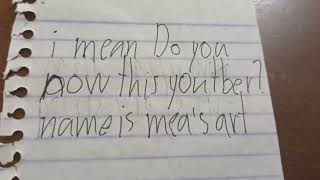 i mean Do you
now this youtber?
name is mea's art